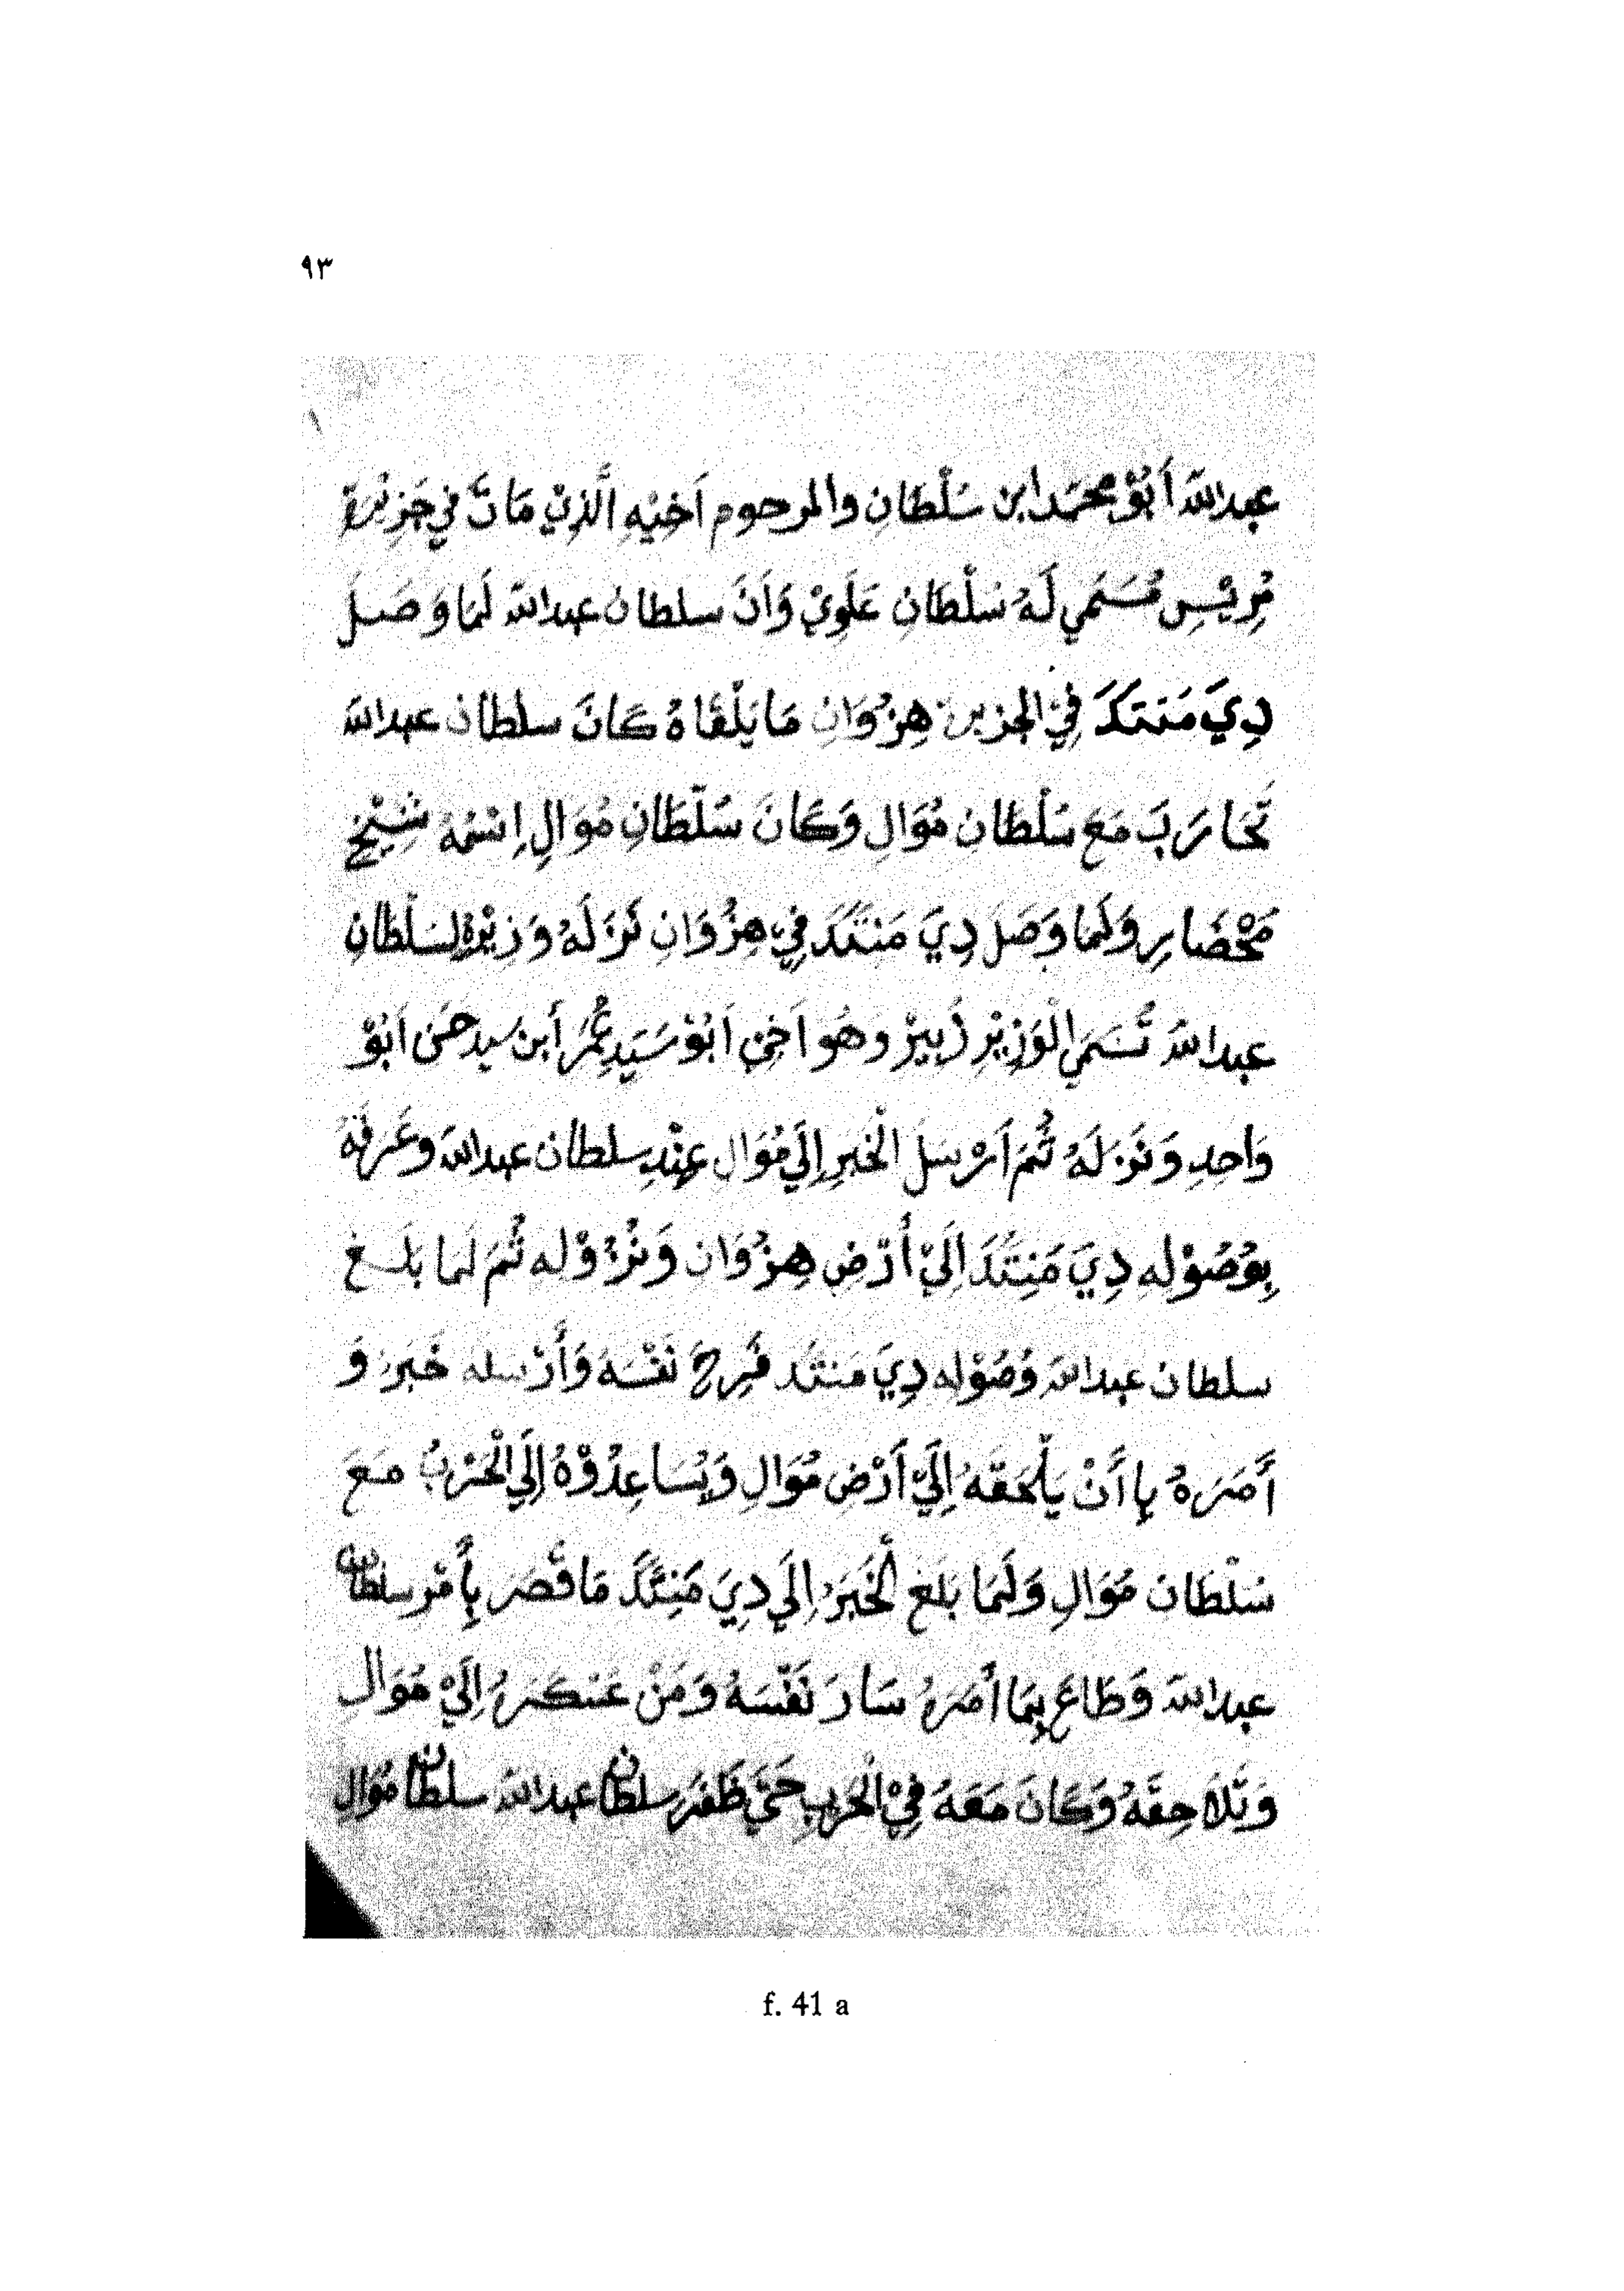 ٩٣
عبدالله أَبُوْ مُحَمَد ابن سُلْطَانِ والمرحوم اَخِيْهِ الَّذِيْ مَاتَ فِي جَزِيْرَةِ
مُرِيْسِ مُسَمِي لَهُ سُلْطَانِ عَلَوِيْ وَاَنَ سلطان عبدالله لَمَا وَصَلَ
دِيَ مَنتَكَدَ فِيْ الجزيرة هِنْزُوَانِ مَا يَلْقَاهُ كَانَ سلطان عبدالله
تَحَارَبَ مَعَ سُلْطَان مُوَالِ وَكَانَ سُلْطَانِ مُوَالِ اِسْمُهُ شَيْخِ
مَحْضَارِ وَلَمَا وَصَلَ دِيَ مَنتَكَدَ فِيْ هِنْزُوَانِ نَزَلَهُ وَزِيْرُهُ لِسُلْطَانِ
عبدالله تُسَمَي الْوَزِيْرِ زُبِيْرْ وهُو اَخِيْ اَبُوْ سَيَدِ عُمَرْ أبن سيد حسن اَبُوْ
وَاحِدِ وَنَزَلَهُ ثُمَ اَرْسَلَ الْخَبَرِ اِلَيْ مُوَالِ عِنْدِ سلطان عبدالله وعَرفَهُ
بِوُصُوْلِهِ دِيَ مَنِتَكَدَ اِلَيْ أَرْضِ هِنْزُوَان وَنُزُوْلِه ثُمَ لَما بَلَغ
سلطان عبدالله وُصُوْلِه دِيَ مَنتَكَد فَرِحَ نَفْسَهُ وَأَرْسله خَبَرْ وَ
أَمَرَهُ بِاَنْ يَلْحَقَهُ اِلَيْ أَرْضِ مُوَالِ وَيُسَاعِدُوْهُ اِلَي الْحَرْبُ مَعَ
سُلْطَان مُوَالِ وَلَمَا بَلَغ الْخَبَرُ اِلَي دِيَ مَنِتَكَدَ مَا قَصَرَ بِأَمْر سلطان
عبدالله وَطَاعَ بِمَا أَمَرَهُ سَارَ نَفْسَهُ وَمَنْ عَسْكَرهُ اِلَيْ مُوَالِ
وَتَلَاحِقَهُ وَكَانَ مَعَهُ فِيْ الْحَرْبِ حَتَيْ ظَفَرَ سلطان عبدالله سلطان مُوَالِ
f. 41 a